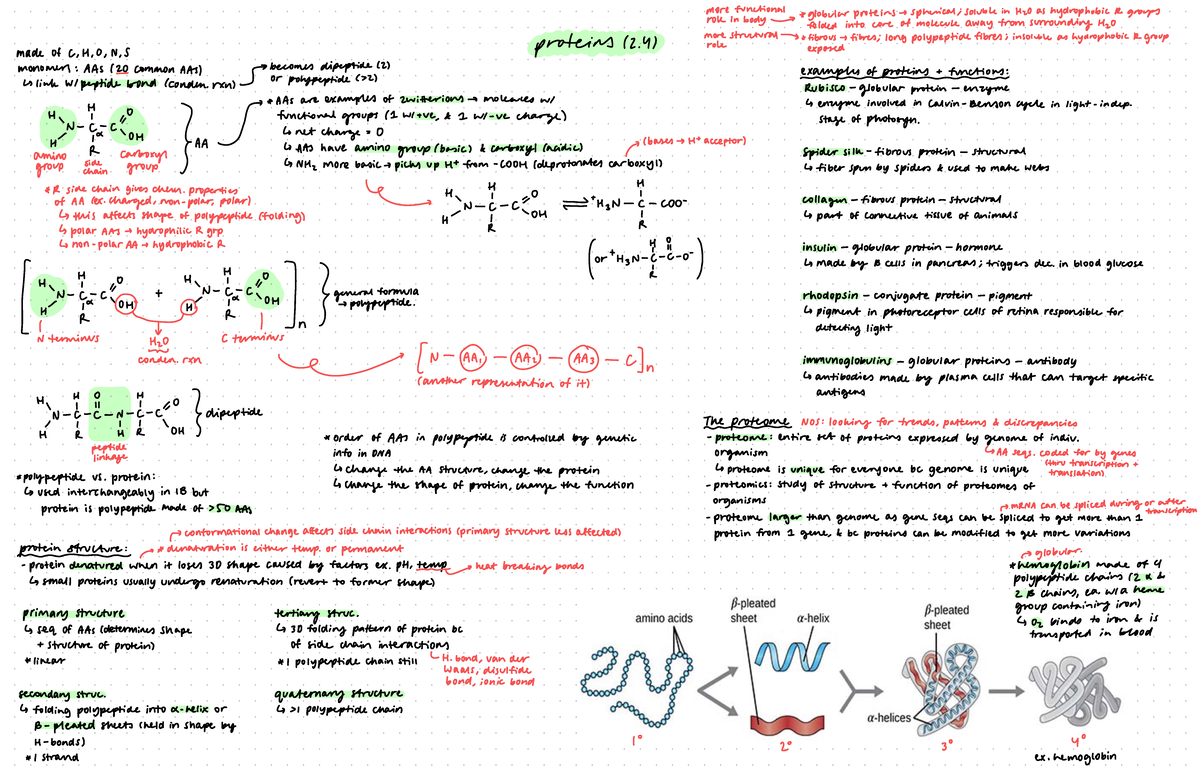 proteins (2.4)
made of C, H, O, N, S
monomer: AAs (20 common AAs)
↳ link w/ peptide bond (conden. rxn)
→ becomes dipeptide (2)
or polypeptide (>2)
H
H N - C - C O
H α OH
R
amino group
side chain
carboxyl group
AA
* AAs are examples of zwitterions → molecules w/
functional groups (1 w/ +ve, & 1 w/ -ve charge)
↳ net charge = 0
↳ AAs have amino group (basic) & carboxyl (acidic)
↳ NH2 more basic → picks up H+ from -COOH (deprotonates carboxyl)
(bases → H+ acceptor)
* R side chain gives chem. properties
of AA (ex. charged, non-polar, polar)
↳ this affects shape of polypeptide (folding)
↳ polar AAs → hydrophilic R grp
↳ non-polar AA → hydrophobic R
H
H N - C - C O
H R OH
⇌
H
+H3N - C - COO-
R
(or +H3N - C - C - O-)
H O
R
H H
H N - C - C O + H N - C - C O
H α OH H α OH
R R
n
general formula
→ polypeptide.
N terminus
H2O
conden. rxn
C terminus
[N - AA1 - AA2 - AA3 - C]n
(another representation of it)
H H O H O
N - C - C - N - C - C
H R H R OH
dipeptide
peptide
linkage
* polypeptide vs. protein:
↳ used interchangeably in IB but
protein is polypeptide made of >50 AAs
* order of AAs in polypeptide is controlled by genetic
info in DNA
↳ change the AA structure, change the protein
↳ change the shape of protein, change the function
→ conformational change affects side chain interactions (primary structure less affected)
protein structure:
* denaturation is either temp. or permament
- protein denatured when it loses 3D shape caused by factors ex. pH, temp
→ heat breaking bonds
↳ small proteins usually undergo renaturation (revert to former shape)
primary structure
↳ seq of AAs (determines shape
+ structure of protein)
* linear
secondary struc.
↳ folding polypeptide into α-helix or
β-pleated sheets (held in shape by
H-bonds)
* 1 strand
tertiary struc.
↳ 3D folding pattern of protein bc
of side chain interactions
* 1 polypeptide chain still
↳ H. bond, van der
Waals, disulfide
bond, ionic bond
quaternary structure
↳ >1 polypeptide chain
more functional
role in body
more structural
role
* globular proteins → spherical; soluble in H2O as hydrophobic R groups
folded into core of molecule away from surrounding H2O
* fibrous → fibres; long polypeptide fibres; insoluble as hydrophobic R group
exposed
examples of proteins + functions:
Rubisco - globular protein - enzyme
↳ enzyme involved in Calvin-Benson cycle in light-indep.
stage of photosyn.
spider silk - fibrous protein - structural
↳ fiber spun by spiders & used to make webs
collagen - fibrous protein - structural
↳ part of connective tissue of animals
insulin - globular protein - hormone
↳ made by B cells in pancreas; triggers dec. in blood glucose
rhodopsin - conjugate protein - pigment
↳ pigment in photoreceptor cells of retina responsible for
detecting light
immunoglobulins - globular proteins - antibody
↳ antibodies made by plasma cells that can target specific
antigens
The proteome
NOS: looking for trends, patterns & discrepancies
- proteome: entire set of proteins expressed by genome of indiv.
organism
→ AA seqs. coded for by genes
(thru transcription +
translation)
↳ proteome is unique for everyone bc genome is unique
- proteomics: study of structure + function of proteomes of
organisms
→ mRNA can be spliced during or after
transcription
- proteome larger than genome as gene seqs can be spliced to get more than 1
protein from 1 gene, & bc proteins can be modified to get more variations
→ globular
* hemoglobin made of 4
polypeptide chains (2 α &
2 β chains, ea. w/ a heme
group containing iron)
↳ O2 binds to iron & is
transpoted in blood
amino acids
β-pleated
sheet
α-helix
β-pleated
sheet
α-helices
1°
2°
3°
4°
ex. hemoglobin